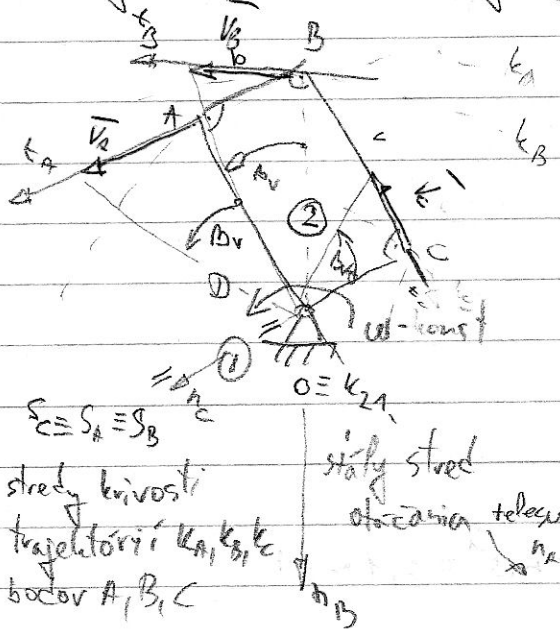 t_B V_B B
b k_A
A
t_A V_A c k_B
ω_v
② 
ω_v C
D
ω-konst
①
n_C O ≡ k_21
S_C ≡ S_A ≡ S_B
stredy krivosti
trajektórií k_A, k_B, k_C
bodov A, B, C
stály stred
otáčania telesa
n_A
n_B